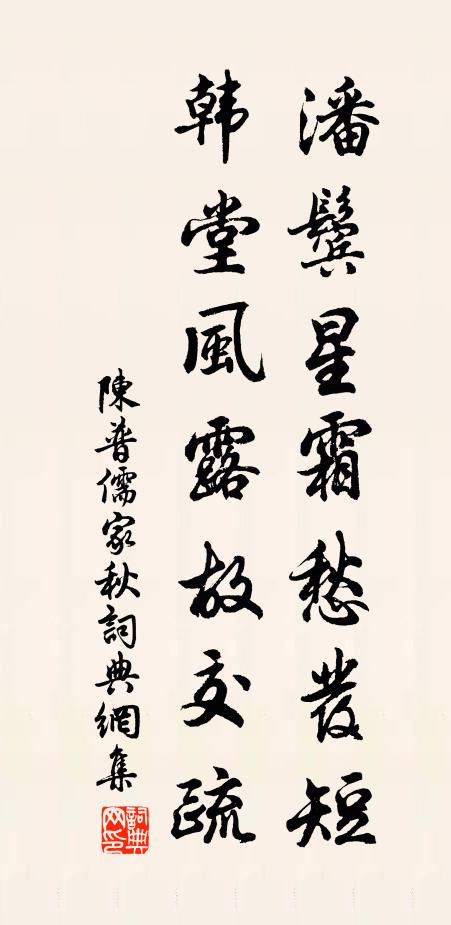 潘鬢星霜愁發短
韓堂風露故交疏
陳普儒家秋詞典網集
詞典網印